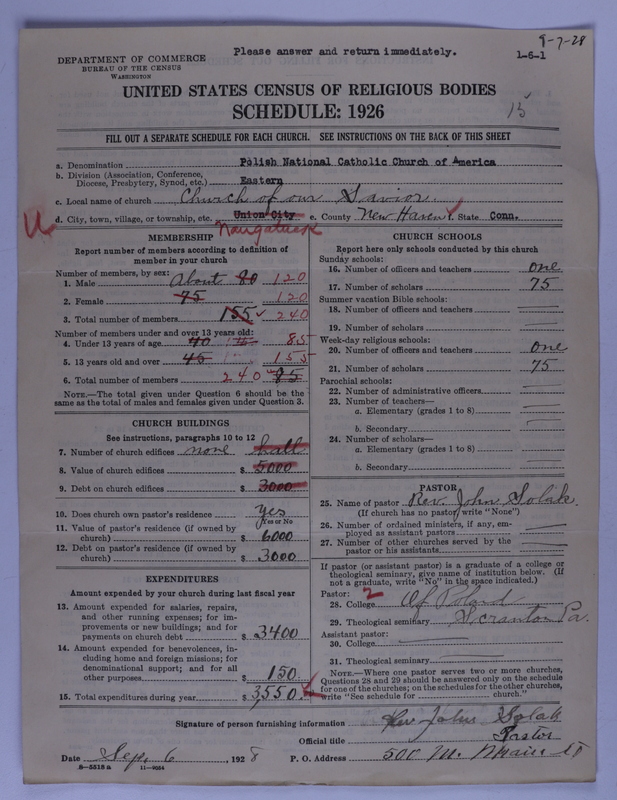 9-7-28
Please answer and return immediately.
1-6-1
DEPARTMENT OF COMMERCE
BUREAU OF THE CENSUS
WASHINGTON
UNITED STATES CENSUS OF RELIGIOUS BODIES
SCHEDULE: 1926
15
FILL OUT A SEPARATE SCHEDULE FOR EACH CHURCH. SEE INSTRUCTIONS ON THE BACK OF THIS SHEET
a. Denomination Polish National Catholic Church of America
b. Division (Association, Conference, Diocese, Presbytery, Synod, etc.) Eastern
c. Local name of church Church of our Savior
d. City, town, village, or township, etc. Union City e. County New Haven f. State Conn.
Naugatuck
MEMBERSHIP
Report number of members according to definition of member in your church
Number of members, by sex:
1. Male About 80 120
2. Female 75 120
3. Total number of members 155 240
Number of members under and over 13 years old:
4. Under 13 years of age 40 85
5. 13 years old and over 45 155
6. Total number of members 240 85
NOTE.—The total given under Question 6 should be the same as the total of males and females given under Question 3.
CHURCH BUILDINGS
See instructions, paragraphs 10 to 12
7. Number of church edifices none hall
8. Value of church edifices $ 5000
9. Debt on church edifices $ 3000
10. Does church own pastor's residence Yes
Yes or No
11. Value of pastor's residence (if owned by church) $ 6000
12. Debt on pastor's residence (if owned by church) $ 3000
EXPENDITURES
Amount expended by your church during last fiscal year
13. Amount expended for salaries, repairs, and other running expenses; for improvements or new buildings; and for payments on church debt $ 3400
14. Amount expended for benevolences, including home and foreign missions; for denominational support; and for all other purposes $ 150.
15. Total expenditures during year $ 3,550
CHURCH SCHOOLS
Report here only schools conducted by this church
Sunday schools:
16. Number of officers and teachers one
17. Number of scholars 75
Summer vacation Bible schools:
18. Number of officers and teachers
19. Number of scholars
Week-day religious schools:
20. Number of officers and teachers one
21. Number of scholars 75
Parochial schools:
22. Number of administrative officers
23. Number of teachers—
a. Elementary (grades 1 to 8)
b. Secondary
24. Number of scholars—
a. Elementary (grades 1 to 8)
b. Secondary
PASTOR
25. Name of pastor Rev. John Solak
(If church has no pastor, write "None")
26. Number of ordained ministers, if any, employed as assistant pastors
27. Number of other churches served by the pastor or his assistants
If pastor (or assistant pastor) is a graduate of a college or theological seminary, give name of institution below. (If not a graduate, write "No" in the space indicated.)
Pastor: 2
28. College Of Poland
29. Theological seminary Scranton Pa.
Assistant pastor:
30. College
31. Theological seminary
NOTE.—Where one pastor serves two or more churches, Questions 28 and 29 should be answered only on the schedule for one of the churches; on the schedules for the other churches, write "See schedule for church."
Signature of person furnishing information Rev John Solak
Official title Pastor
Date Sep. 6, 1928 P. O. Address 500 N. Main St
8-5513a 11-9554